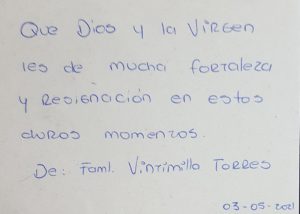 Que Dios y la Virgen
les de mucha fortaleza
y Resignación en estos
duros momentos.
De: Faml. Vintimilla Torres
03-05-2021